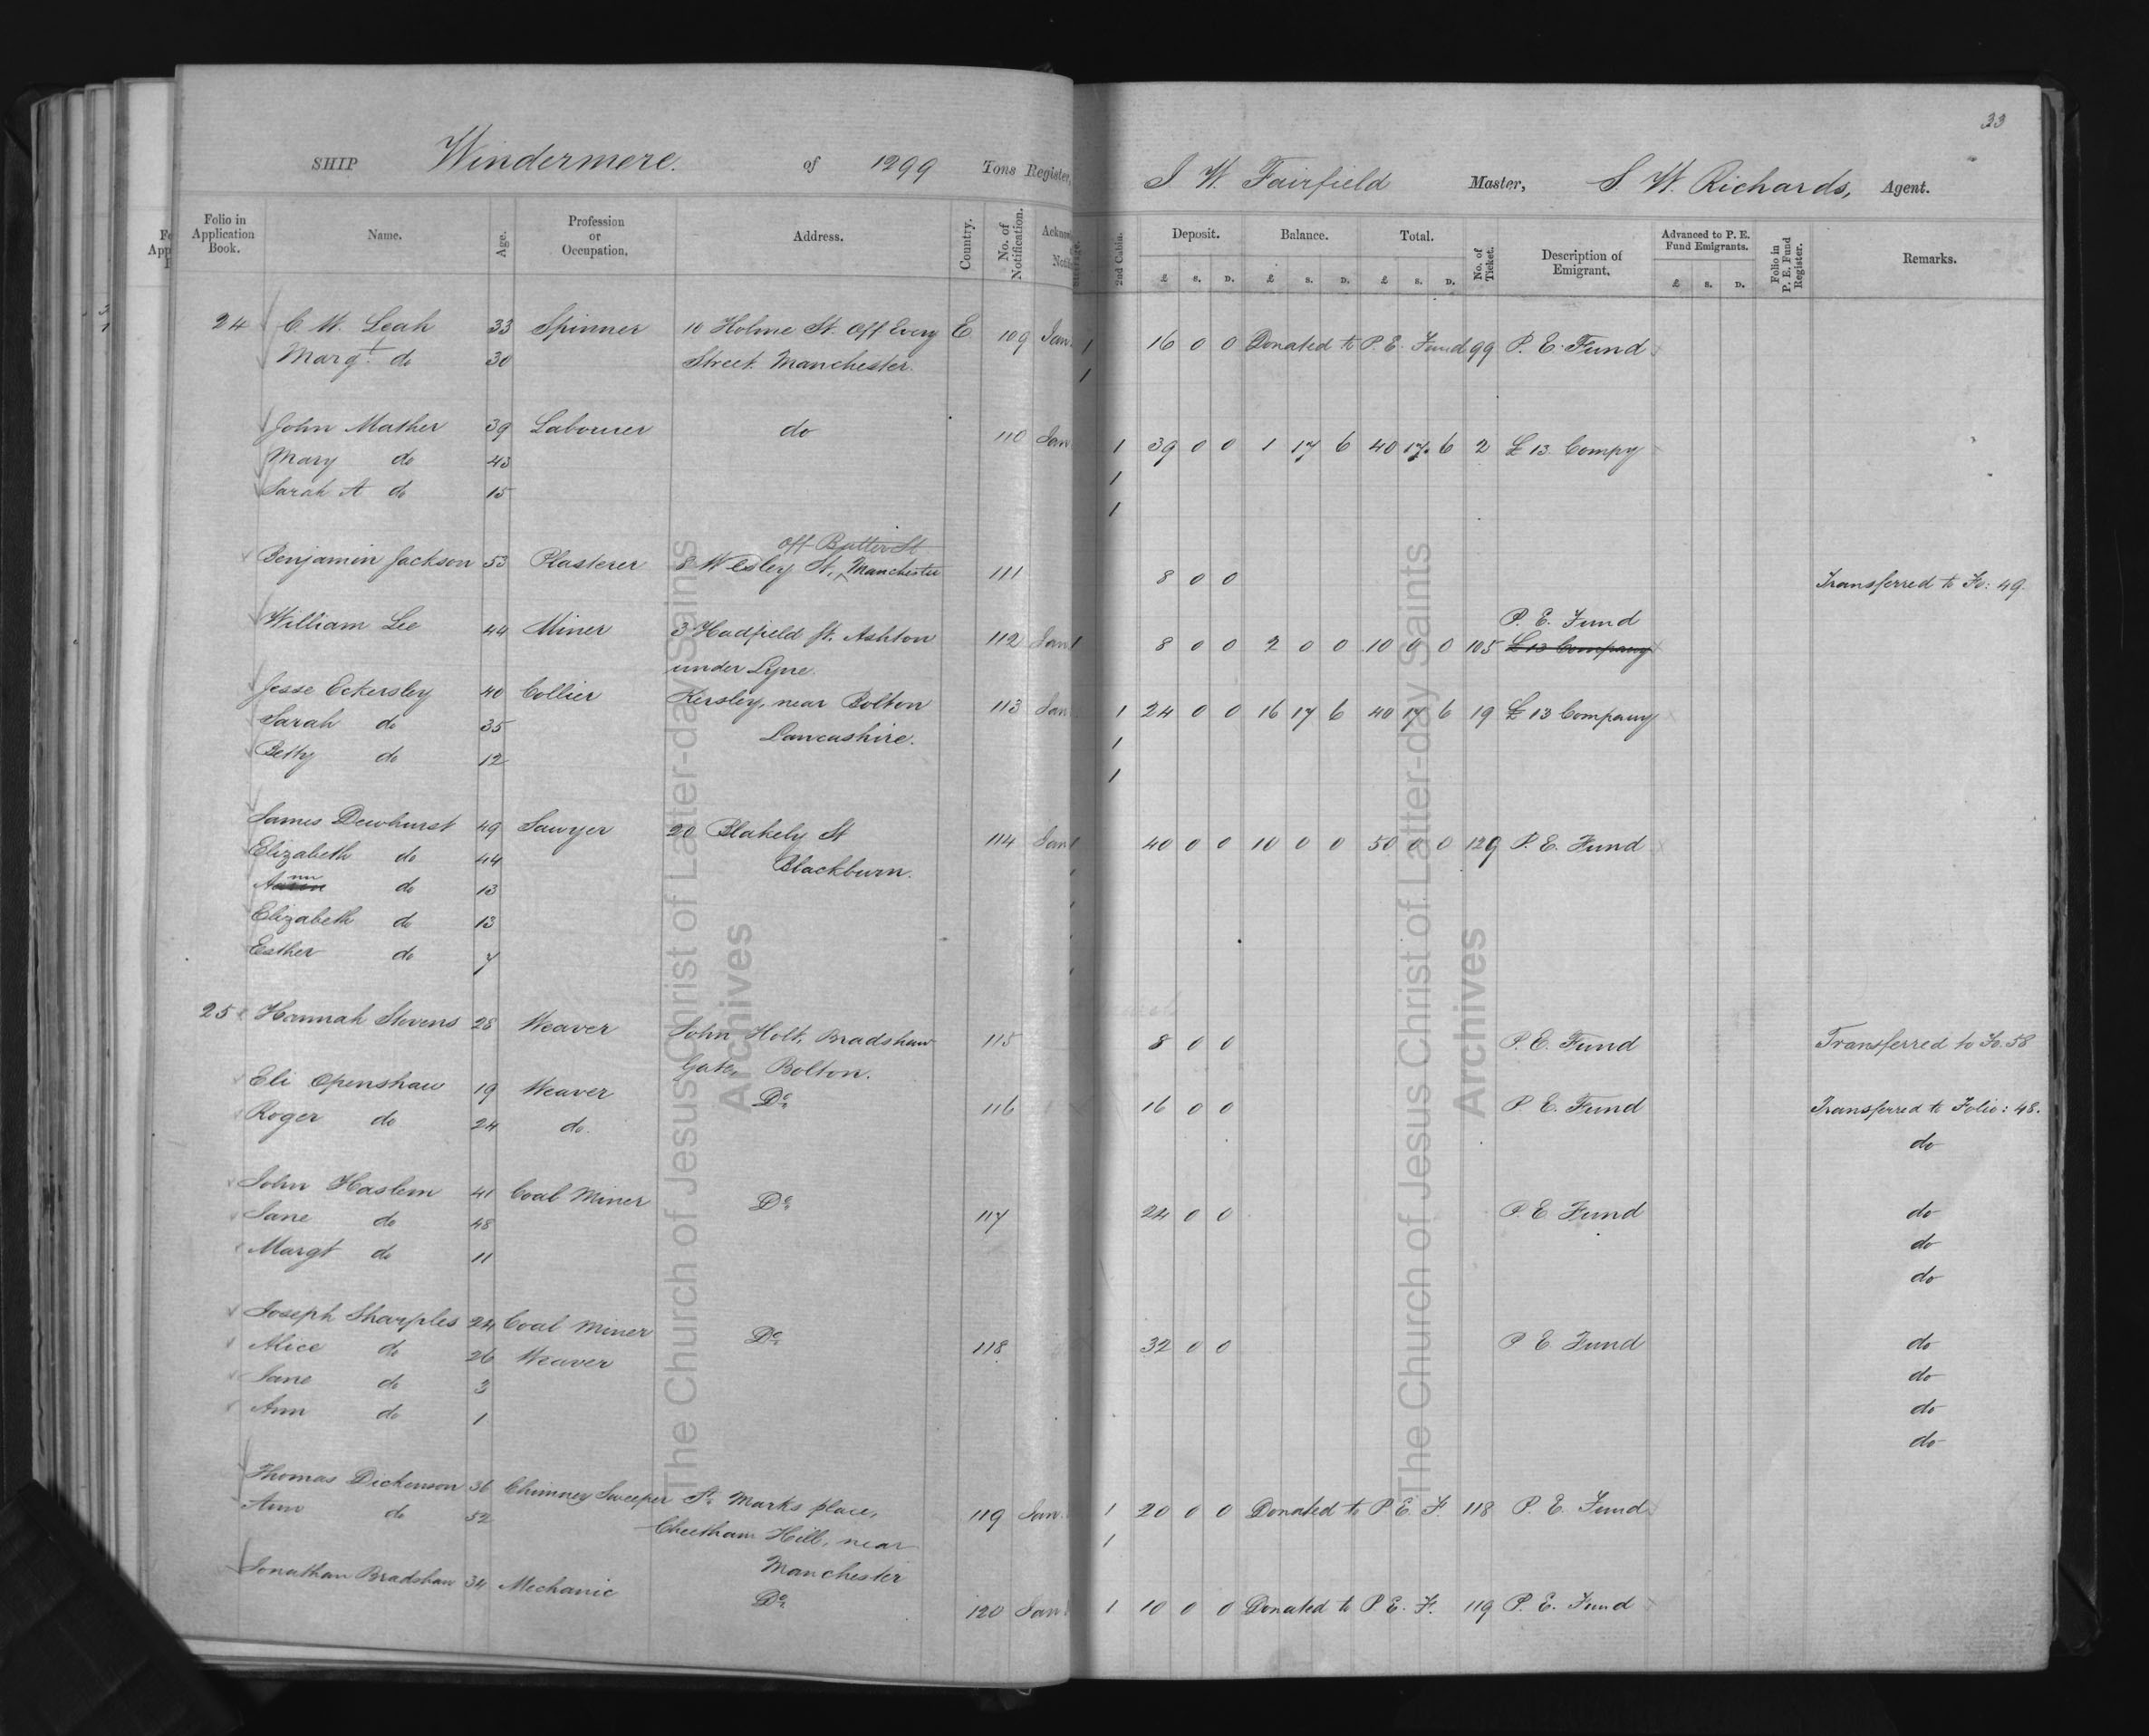 33
SHIP Windermere. of 1299 Tons Register, J W. Fairfield Master, S. W. Richards, Agent.
Folio in Application Book. Name. Age. Profession or Occupation. Address. Country. No. of Notification. 2nd Cabin. Deposit. Balance. Total. No. of Ticket. Description of Emigrant. Advanced to P. E. Fund Emigrants. Folio in P. E. Fund Register. Remarks.
£ S. D. £ S. D. £ S. D. £ S. D.
24 C. W. Leah 33 Spinner 10 Holme St. off Every E 109 Jan. 1 16 0 0 Donated to P. E. Fund 99 P. E. Fund
Margt. do 30 Street. Manchester. 1
John Mather 39 Labourer do 110 Jan 1 39 0 0 1 17 6 40 17 6 2 £13. Compy
Mary do 43 1
Sarah A. do 15 1
off Butter St
Benjamin Jackson 53 Plasterer 8 Wesley St, Manchester 111 8 0 0 Transferred to Fo: 49.
P. E. Fund
William Lee 44 Miner 3 Hadfield St. Ashton 112 Jan 1 8 0 0 2 0 0 10 0 0 105 £13 Company
under Lyne.
Jesse Eckersley 40 Collier Kersley, near Bolton 113 Jan 1 24 0 0 16 17 6 40 17 6 19 £13 Company
Sarah do 35 Lancashire. 1
Betty do 12 1
James Dewhurst 49 Sawyer 20 Blakely St 114 Jan 1 40 0 0 10 0 0 50 0 0 129 P. E. Fund
Elizabeth do 44 Blackburn.
Ann do 13
Elizabeth do 13
Esther do 7
25 Hannah Stevens 28 Weaver John Holt, Bradshaw 115 8 0 0 P. E. Fund Transferred to Fo. 58
Gate, Bolton.
Eli Openshaw 19 Weaver Do. 116 16 0 0 P. E. Fund Transferred to Folio: 48.
Roger do 24 do. do
John Haslem 41 Coal Miner Do. 117 24 0 0 P. E. Fund do
Jane do 48 do
Margt do 11 do
Joseph Sharples 24 Coal Miner Do. 118 32 0 0 P. E. Fund do
Alice do 26 Weaver do
Jane do 3 do
Ann do 1 do
Thomas Dickenson 36 Chimney Sweeper St. Marks place, 119 Jan. 1 20 0 0 Donated to P. E. F. 118 P. E. Fund
Ann do 52 Cheetham Hill, near 1
Manchester
Jonathan Bradshaw 34 Mechanic Do. 120 Jan 1 10 0 0 Donated to P. E. F. 119 P. E. Fund
The Church of Jesus Christ of Latter-day Saints
Archives
The Church of Jesus Christ of Latter-day Saints
Archives